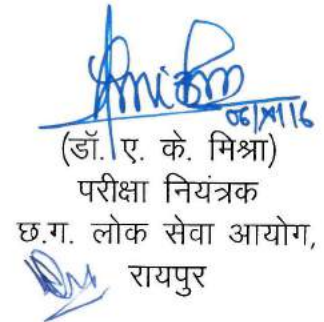 06/XII/16
(डॉ. ए. के. मिश्रा)
परीक्षा नियंत्रक
छ.ग. लोक सेवा आयोग,
रायपुर